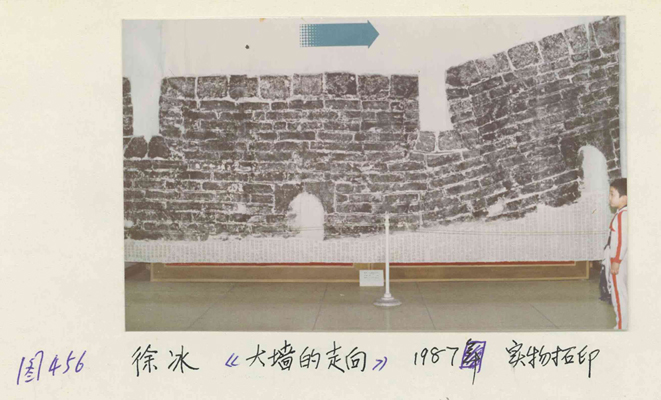 图456 徐冰 《大墙的走向》 1987年 实物拓印